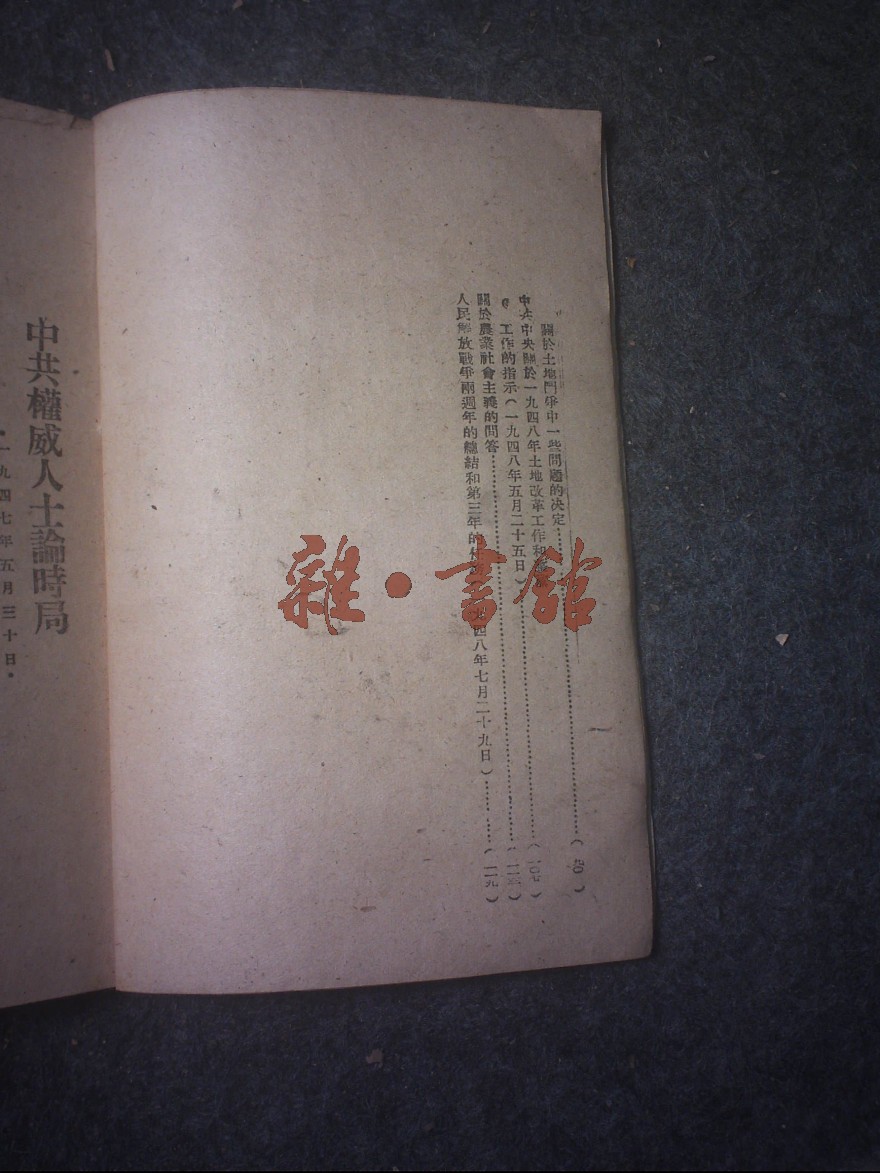 關於土地鬥爭中一些問題的决定……（九〇）
中共中央關於一九四八年土地改革工作和
工作的指示（一九四八年五月二十五日）……（一〇七）
關於農業社會主義的問答……
人民解放戰爭兩週年的總結和第三年的 四八年七月二十九日）……（一一九）
中共權威人士論時局
一九四七年五月三十日。
雜·書館